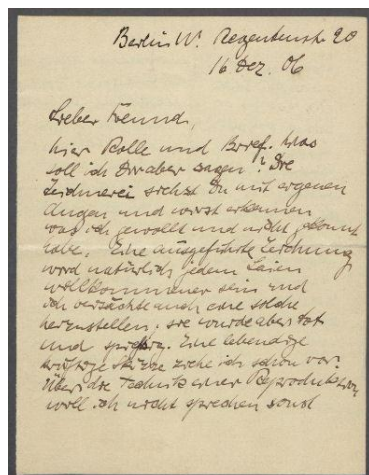 Berlin W. Regentenstr 20
16 Dez. 06
Lieber Freund,
hier Rolle und Brief. Was
soll ich darüber sagen? Die
Zeichnerei siehst Du mit eigenen
Augen und wirst erkennen
was ich gewollt und nicht gekonnt
habe. Eine ausgeführte Zeichnung
wird natürlich jedem Laien
willkommener sein und
ich verzichte auch eine solche
herzustellen, sie wurde aber tot
und. Eine lebendige
Skizze ziehe ich schon vor.
Über die Technik einer Reproduktion
will ich nicht sprechen, sonst